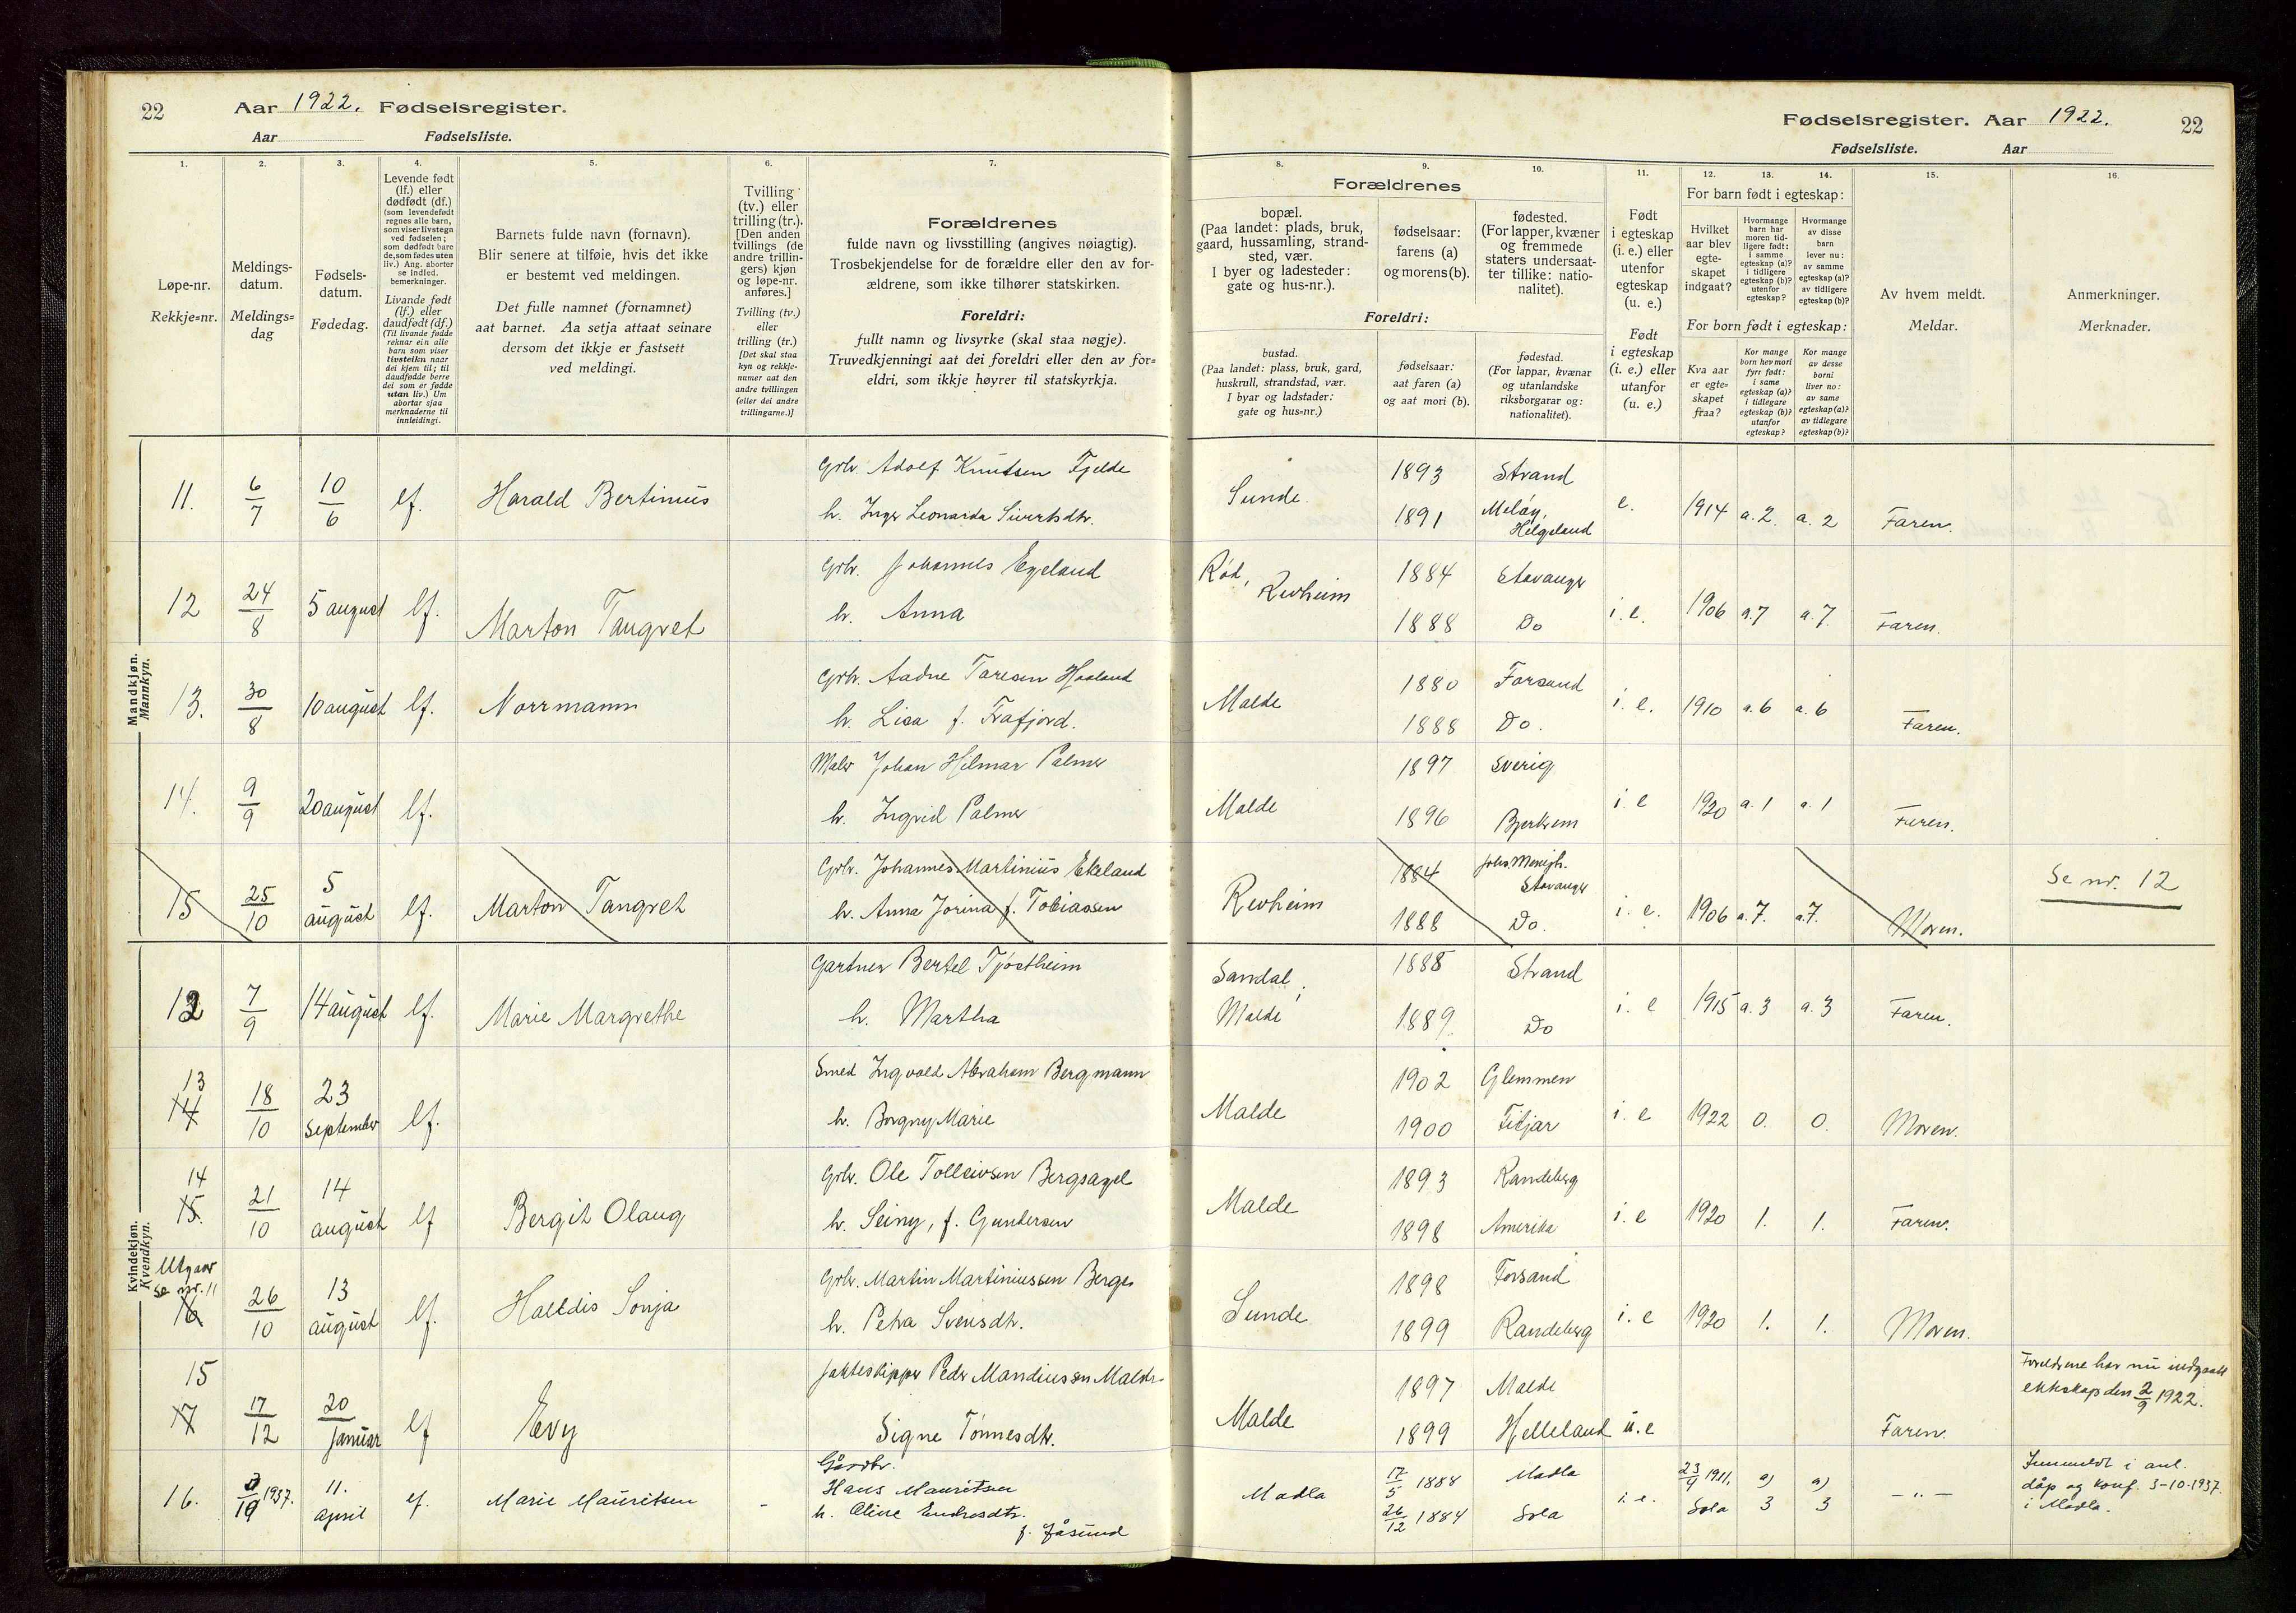 22 Aar 1922. Fødselsregister.
Aar Fødselsliste.
Fødselsregister. Aar 1922. 22
Fødselsliste. Aar
1. 2. 3. 4. 5. 6. 7. 8. 9. 10. 11. 12. 13. 14. 15. 16.
Løpe-nr.
Rekkje=nr.
Meldings-
datum.
Meldings=
dag
Fødsels-
datum.
Fødedag.
Levende født
(lf.) eller
dødfødt (df.)
(som levendefødt
regnes alle barn,
som viser livstegn
ved fødselen;
som dødfødt bare
de, som fødes uten
liv.) Ang. aborter
se indled.
bemerkninger.
Livande født
(lf.) eller
daudfødt (df.)
(Til livande fødde
reknar ein alle
barn som viser
livsteikn naar
dei kjem til; til
daudfødde berre
dei som er fødde
utan liv.) Um
abortar sjaa
merknaderne til
innleidingi.
Barnets fulde navn (fornavn).
Blir senere at tilføie, hvis det ikke
er bestemt ved meldingen.
Det fulle namnet (fornamnet)
aat barnet. Aa setja attaat seinare
dersom det ikkje er fastsett
ved meldingi.
Tvilling
(tv.) eller
trilling (tr.).
[Den anden
tvillings (de
andre trillin-
gers) kjøn
og løpe-nr.
anføres.]
Tvilling (tv.)
eller
trilling (tr.)
[Det skal staa
kyn og rekkje-
numer aat den
andre tvillingen
(eller dei andre
trillingarne.)]
Forældrenes
fulde navn og livsstilling (angives nøiagtig).
Trosbekjendelse for de forældre eller den av for-
ældrene, som ikke tilhører statskirken.
Foreldri:
fullt namn og livsyrke (skal staa nøgje).
Truvedkjenningi aat dei foreldri eller den av for=
eldri, som ikkje høyrer til statskyrkja.
Forældrenes
bopæl.
(Paa landet: plads, bruk,
gaard, hussamling, strand-
sted, vær.
I byer og ladesteder:
gate og hus-nr.).
fødselsaar:
farens (a)
og morens (b).
fødested.
(For lapper, kvæner
og fremmede
staters undersaat-
ter tillike: natio-
nalitet).
Foreldri:
bustad.
(Paa landet: plass, bruk, gard,
huskrull, strandstad, vær.
I byar og ladstader:
gate og hus=nr.)
fødselsaar:
aat faren (a)
og aat mori (b).
fødestad.
(For lappar, kvænar
og utanlandske
riksborgarar og:
nationalitet).
Født
i egteskap
(i. e.) eller
utenfor
egteskap
(u. e.)
Født
i egteskap
(i. e.) eller
utanfor
(u. e.)
For barn født i egteskap:
Hvilket
aar blev
egte-
skapet
indgaat?
Hvormange
barn har
moren tid-
ligere født:
i samme
egteskap (a)?
i tidligere
egteskap (b)?
utenfor
egteskap?
Hvormange
av disse
barn
lever nu:
av samme
egteskap (a)?
av tidligere
egteskap (b)?
For born født i egteskap:
Kva aar
er egte=
skapet
fraa?
Kor mange
born hev mori
fyrr født:
i same
egteskap (a)?
i tidlegare
egteskap (b)?
utanfor
egteskap?
Kor mange
av desse
borni
liver no:
av same
egteskap (a)?
av tidlegare
egteskap (b)?
Av hvem meldt.
Meldar.
Anmerkninger.
Merknader.
Mandkjøn.
Mannkyn.
11. 6/7 10/6 lf. Harald Bertinius Grbr. Adolf Knutsen Fjelde Sunde. 1893 Strand
h. Inger Leonarda Sivertsdtr. 1891 Meløy, Helgeland e. 1914 a. 2. a. 2 Faren.
12 24/8 5 august lf. Marton Tangvet Grbr. Johannes Egeland Rød, Revheim 1884 Stavanger
h. Anna 1888 Do i. e. 1906 a. 7 a. 7. Faren.
13. 30/8 10 august lf. Norrmann Grbr. Aadne Taresen Haaland Malde 1880 Forsand
h. Lisa f. Frafjord. 1888 Do. i. e. 1910 a. 6 a. 6 Faren.
14. 9/9 20 august lf. Maler Johan Hilmar Palmer Malde 1897 Sverig
h. Ingrid Palmer 1896 Bjerkrem i. e 1920 a. 1 a. 1 Faren.
15 25/10 5 august lf. Marton Tangvet Grbr. Johannes Martinius Ekeland Revheim 1884 Stavanger
h. Anna Jorina f. Tobiassen 1888 Do. i. e. 1906 a. 7. a. 7. Moren. Se nr. 12
Kvindekjøn.
Kvendkyn.
12 7/9 14 august lf. Marie Margrethe Gartner Bertel Tjøstheim Sandal, Malde 1888 Strand
h. Martha 1889. Do i. e 1915 a. 3 a. 3 Faren.
13 14 18/10 23 september lf. Smed Ingvald Abraham Bergmann Malde 1902 Glemmen
h. Borgny Marie 1900 Fitjar i. e 1922 0. 0. Moren.
14 15. 21/10 14 august lf Bergit Olaug Grbr. Ole Tolleivsen Bergsagel Malde 1893 Randeberg
h. Seiny, f. Gundersen 1898 Amerika i. e 1920 1. 1. Faren.
Utgaar
se nr. 11
16 26/10 13 august lf. Halldis Sonja Grbr. Martin Martiniussen Berge Sunde. 1898 Forsand
h. Petra Sveinsdtr. 1899 Randeberg i. e 1920 1. 1. Moren.
15 17 17/12 20/januar lf Evy Jakteskipper Peder Mandiussen Malde Malde 1897 Malde
Signe Tønnesdtr. 1899 Helleland u. e Faren. Foreldrene har nu indgaatt
ekteskap den 2/9 1922.
16. /10 1937. 11. april lf. Marie Mauritsen - Gårdbr.
Hans Mauritsen Madla 17/5 1888 Madla i. e. 23/4 1911. a) 3 a) 3 — " —
h. Oline Endresdtr. 26/12 1884 Sola Sola
f. Jåsund
Innmeldt i anl.
dåp og konf. 3-10-1937.
i Madla.